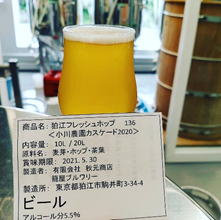 商品名: 狛江フレッシュホップ 136
<小川農園カスケード2020>
内容量: 10L / 20L
原料名: 麦芽・ホップ・茶葉
賞味期限: 2021. 5. 30
製造者: 有限会社 秋元商店
籠屋ブルワリー
製造所: 東京都狛江市駒井町3-34-4
ビール
アルコール分5.5%